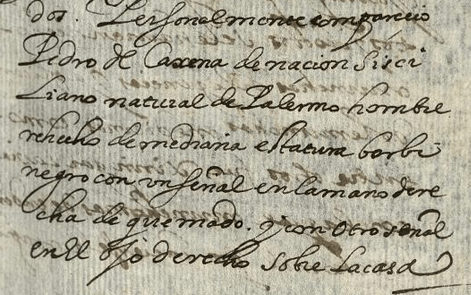 dos. Personalmente comparecio
Pedro de Caxena de nacion Sisci
liano natural de Palermo hombre
rehecho de mediana estatura barbi
negro con un señal en la mano dere
cha de quemado. y con otro señal
en el ojo derecho sobre la